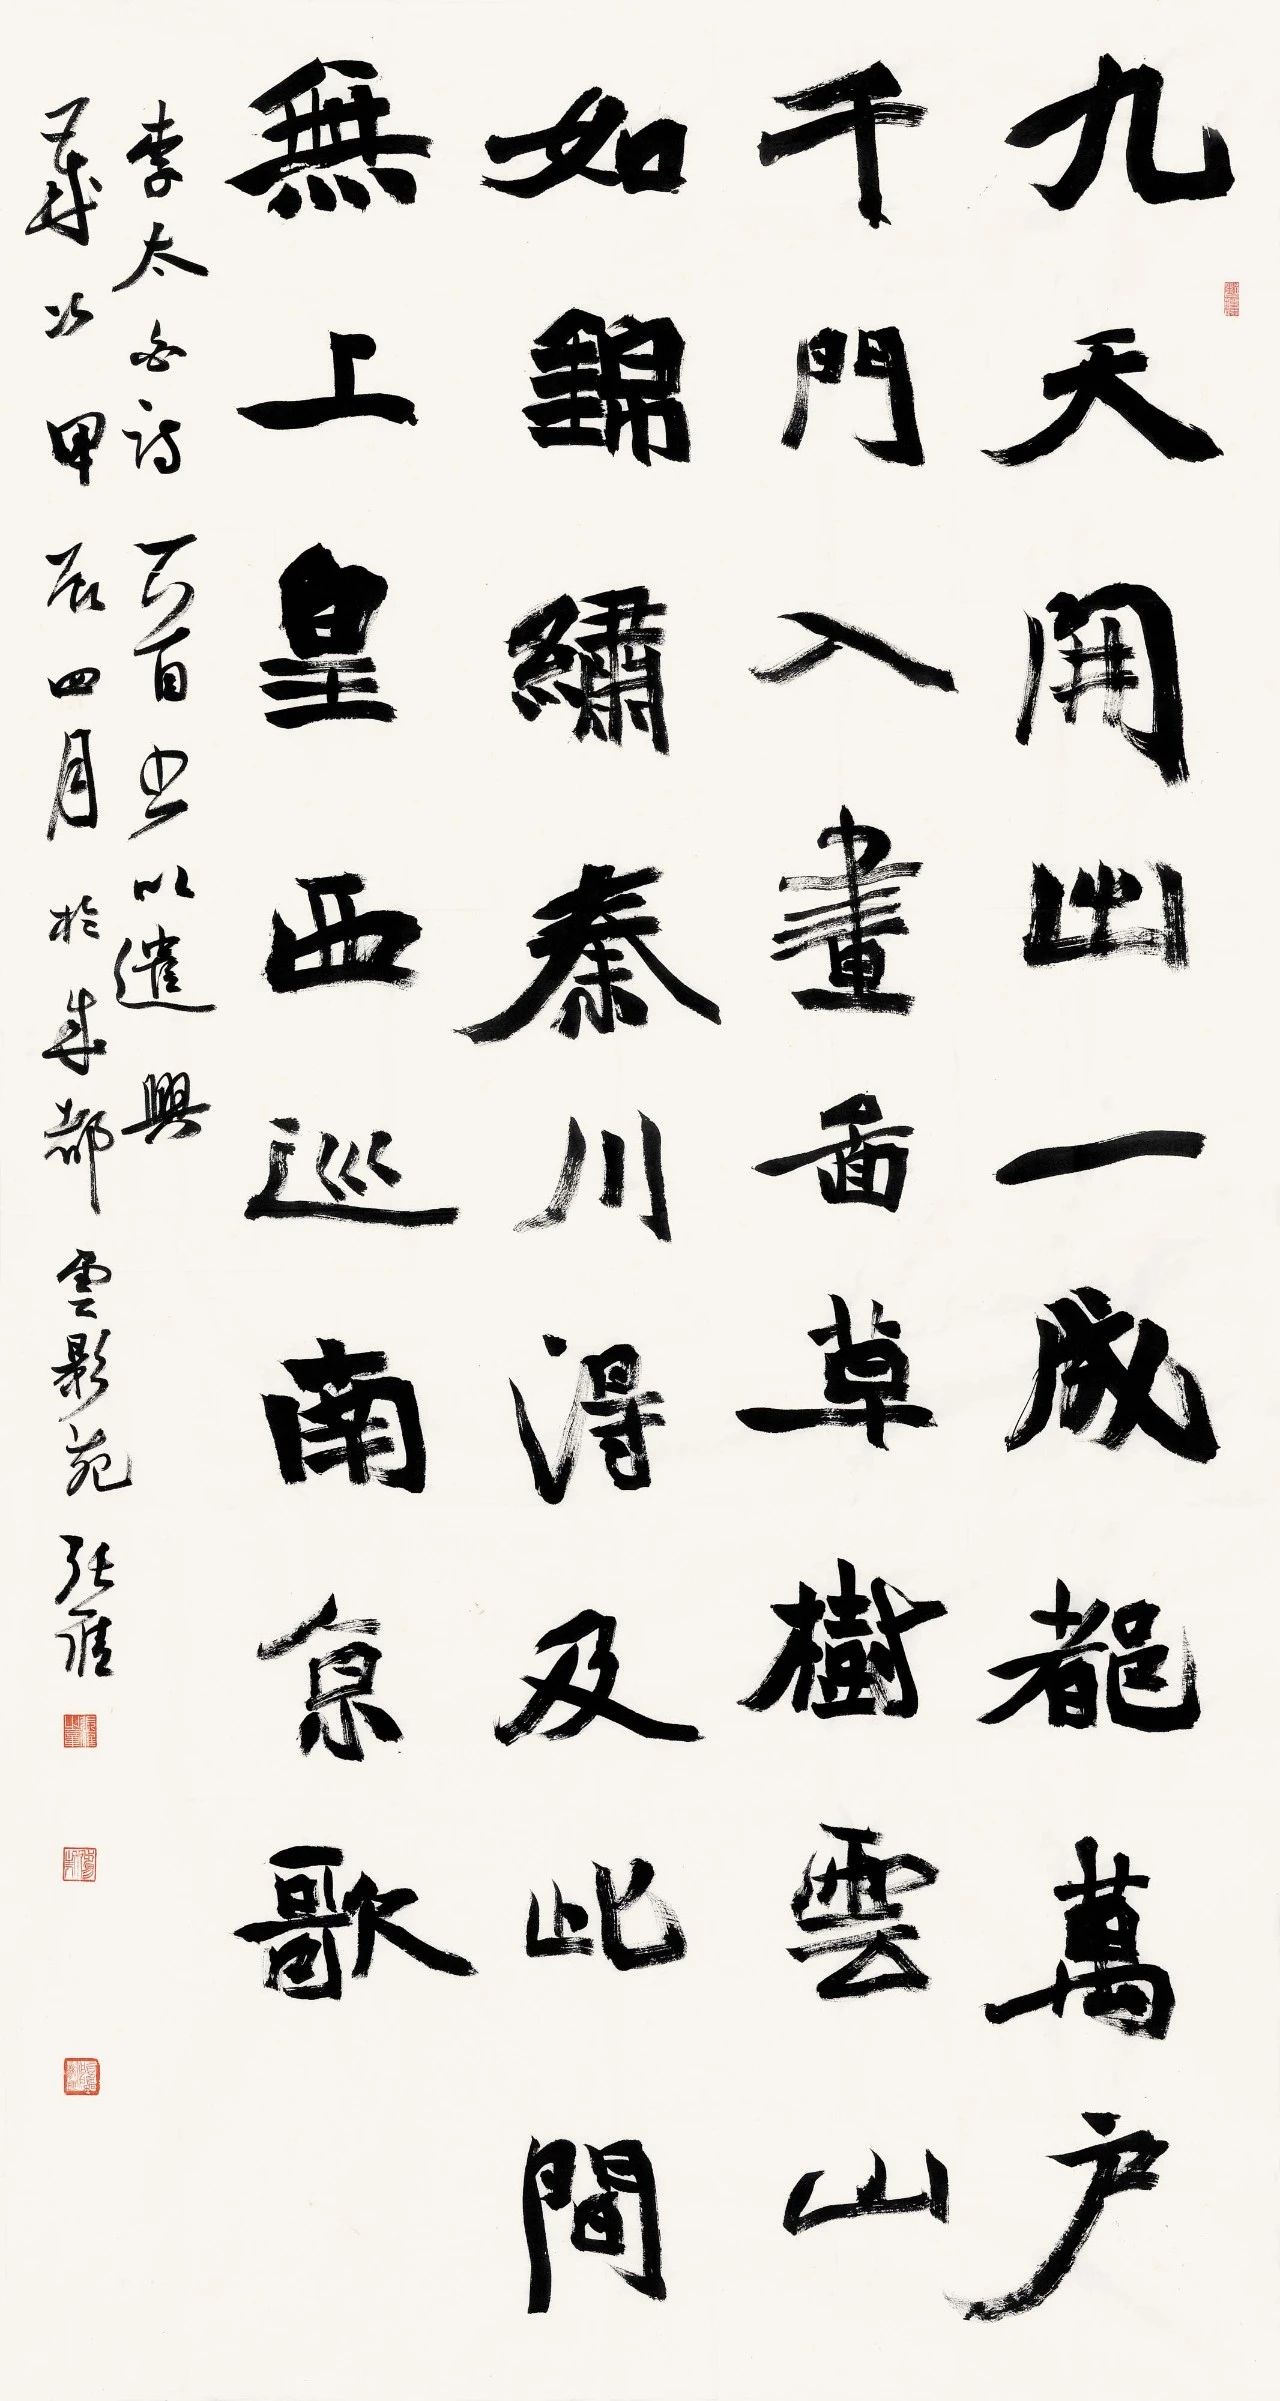 九天開出一成都萬户
千門入畫啚草樹雲山
如錦繡秦川得及此間
無上皇西巡南京歌
李太白詩一首書以遣興
歲次甲辰四月於成都雲影苑張雁